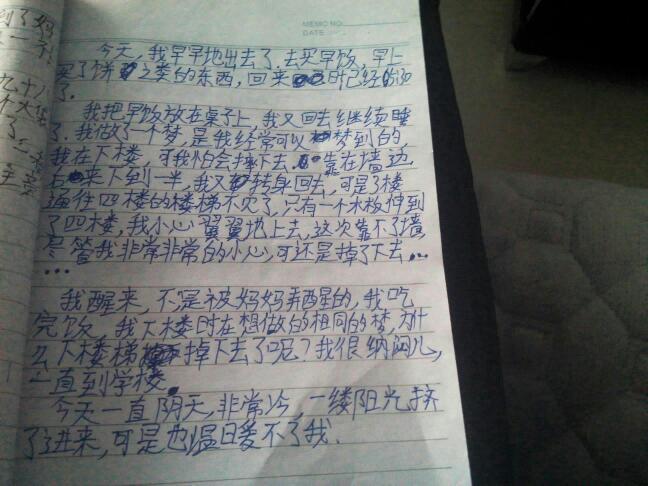 MEMO NO.
DATE
今天,我早早地出去了.去买早饭,早上
买了饼之类的东西,回来时已经6:50
了.
我把早饭放在桌子上,我又回去继续睡
了.我做了一个梦,是我经常可以梦到的
我在下楼,可我怕会摔下去.靠在墙边
后来下到一半,我又转身回去,可是3楼
通往四楼的楼梯不见了,只有一个木板伸到
了四楼,我小心翼翼地上去,这次靠不了墙
尽管我非常非常的小心,可还是掉了下去…
…
我醒来,不是被妈妈弄醒的,我吃
完饭.我下楼时在想做的相同的梦,为什
么下楼梯掉下去了呢?我很纳闷儿,
一直到学校.
今天一直阴天,非常冷,一缕阳光挤
了进来,可是也温暖不了我.